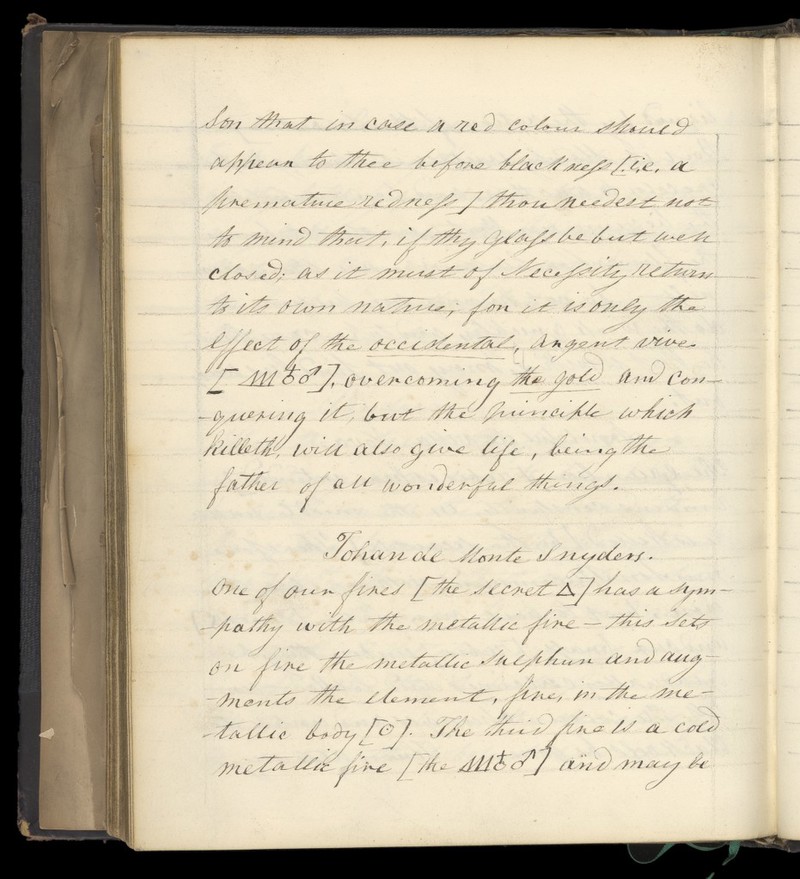 Son that in case a red colour should
appear to thee before blackness [i.e. a
premature redness] thou needest not
to mind that, if thy glass be but well
closed; as it must of Necessity return
to its own nature; for it is only the
effect of the occidental, argent vive
[♏♁♂], overcoming the gold and con-
-quering it, but the principle which
killeth, will also give life, being the
father of all wonderful things.
Johan de Monte Snyders.
One of our fires [the secret △] has a sym-
-pathy with the metallic fire – this sets
on fire the metallic sulphur and aug-
-ments the element, fire, in the me-
-tallic body [☉]. The third fire is a cold
metallic fire [the ♏♁♂] and may be